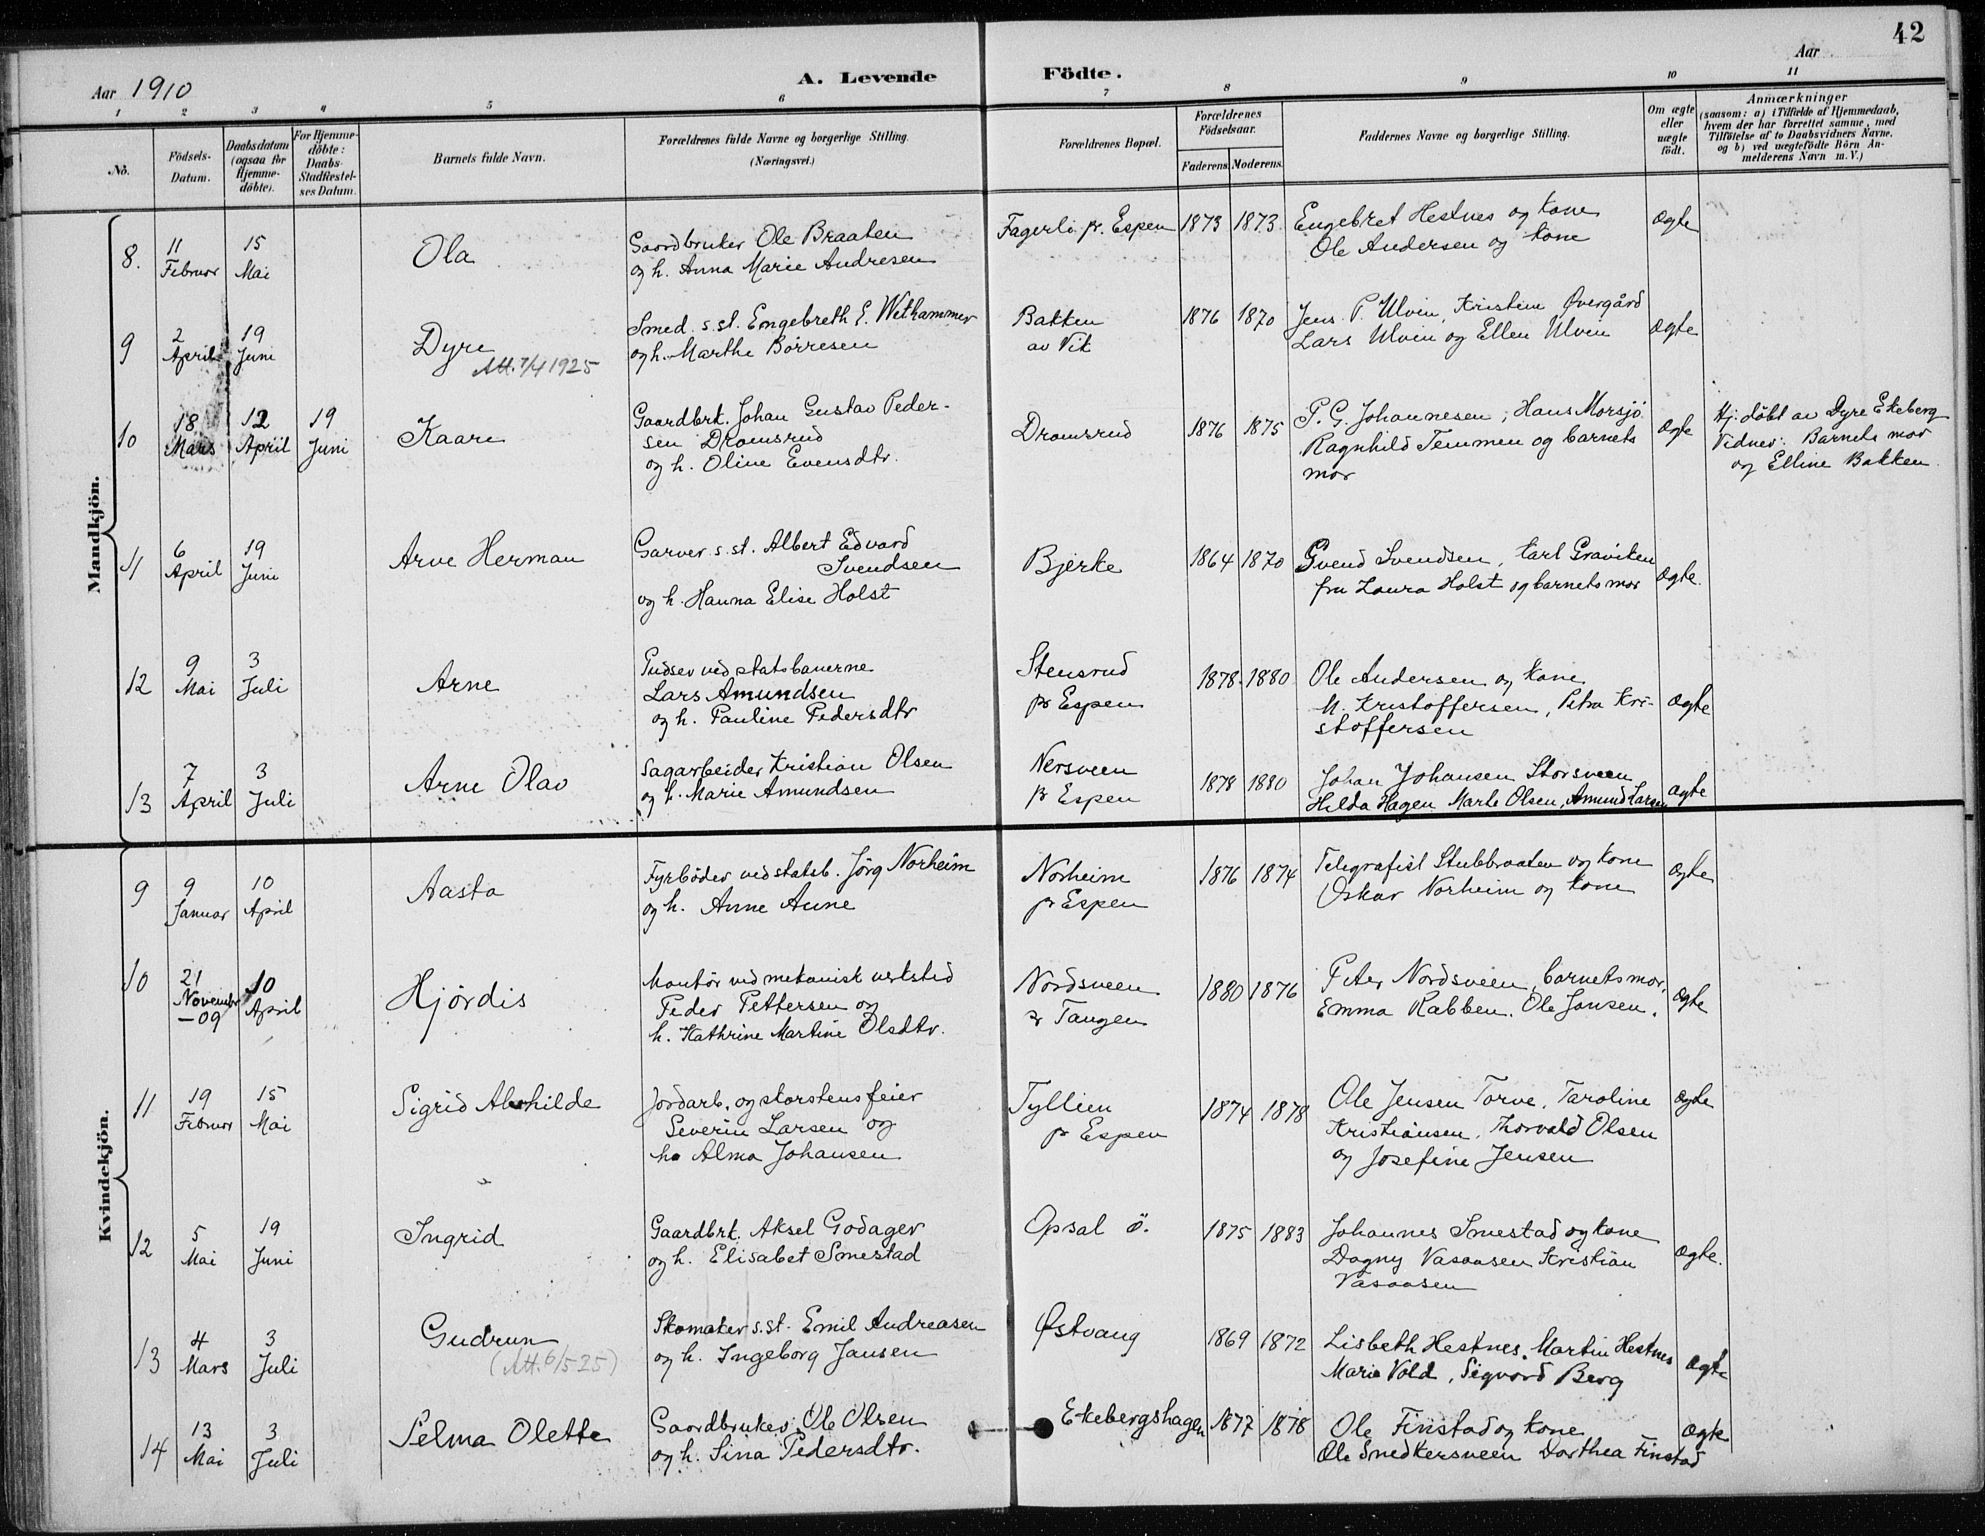 42
Aar 1910
A. Levende Födte.
Aar
1 2 3 4 5 6 7 8 9 10 11
No.
Födsels-Datum.
Daabsdatum (ogsaa for Hjemme-döbte).
For Hjemme-döbte: Daabs-Stadfestel-ses Datum.
Barnets fulde Navn.
Forældrenes fulde Navne og borgerlige Stilling. (Næringsvei.)
Forældrenes Bopæl.
Forældrenes Födselsaar.
Faderens. Moderens.
Faddernes Navne og borgerlige Stilling.
Om ægte eller uægte födt.
Anmærkninger
(saasom: a) i Tilfælde af Hjemmedaab, hvem der har forrettet samme, med Tilföielse af to Daabsvidners Navne, og b) ved uægtefödte Börn An-melderens Navn m. V.)
Mandkjön.
8. 11 Februar 15 Mai Ola
Gaardbruker Ole Braaten
og h. Anna Marie Andresen
Fagerli pr. Espen 1873 1873
Engebret Hestnes og kone
Ole Andersen og kone
Ægte
9 2 April 19 Juni Dyre
Att. 7/4 1925
Smed. s.st. Engebreth E. Wethammer
og h. Marthe Börresen
Bakken
av Vik
1876 1870
Jens P. Ulvin, Kristine Øvergård
Lars Ulvin og Ellen Ulvin
Ægte
10 18 Mars 12 April 19 Juni Kaare
Gaardbrk. Johan Gustav Peder-
sen Dramsrud
og h. Oline Evensdtr.
Dramsrud 1876 1875
P. G. Johannesen; Hans Morsjö
Ragnhild Temmen og barnets
mor
Ægte
Hj. døbt av Dyre Ekeberg
Vidner: Barnets mor
og Elline Bakken
11 6 April 19 Juni Arve Herman
Garver s.st. Albert Edvard
Svendsen
og h. Hanna Elise Holst
Bjerke 1864 1870
Svend Svendsen, Karl Graviken
fru Laura Holst og barnets mor
Ægte.
12 9 Mai 3 Juli Arne
Pudser ved statsbanerne
Lars Amundsen
og h. Pauline Pedersdtr
Stensrud
pr Espen
1878 1880
Ole Andersen og kone
M. Kristoffersen, Petra Kri-
stoffersen
Ægte
13 7 April 3 Juli Arne Olav
Sagarbeider Kristian Olsen
og h. Marie Amundsen
Nersveen
pr Espen
1878 1880
Johan Johansen Storsveen
Hilda Hagen Marte Olsen, Amund Larsen
Ægte
Kvindekjön.
9 9 Januar 10 April Aasta
Fyrbøder ved statsb. Jörg Norheim
og h. Anne Aune
Norheim
pr Espen
1876 1874
Telegrafist Stubbraaten og kone
Oskar Norheim og kone
Ægte
10 21 November -09 10 April Hjördis
Montör ved mekanisk verksted
Peder Pettersen og
h. Kathrine Martine Olsdtr.
Nordsveen
pr Tangen
1880 1876
Peter Nordsveen, barnets mor,
Emma Rabben. Ole Jansen.
Ægte
11 19 Februar 15 Mai Sigrid
Jordarb. og skorstensfeier
Severin Larsen og
h. Alma Johansen
Tyllien
pr Espen
1874 1878
Ole Jensen Torve. Karoline
Kristiansen. Thorvald Olsen
og Josefine Jensen
Ægte
12 5 Mai 19 Juni Ingrid
Gaardbrk. Aksel Godager
og h. Elisabet Smestad
Opsal ö. 1875 1883
Johannes Smestad og kone
Dagny Vasaasen Kristian
Vasaasen
Ægte.
13 4 Mars 3 Juli Gudrun
(Att. 6/5 25)
Skomaker s.st. Emil Andreasen
og h. Ingeborg Jansen
Østvang 1869 1872
Lisbeth Hestnes. Martin Hestnes
Marie Vold. Sigvard Berg
Ægte
14 13 Mai 3 Juli Selma Olette
Gaardbruker Ole Olsen
og h. Sina Pedersdtr.
Ekebergshagen 1877 1878
Ole Finstad og kone
Ole Smedkersveen Dorthea Finstad
Ægte